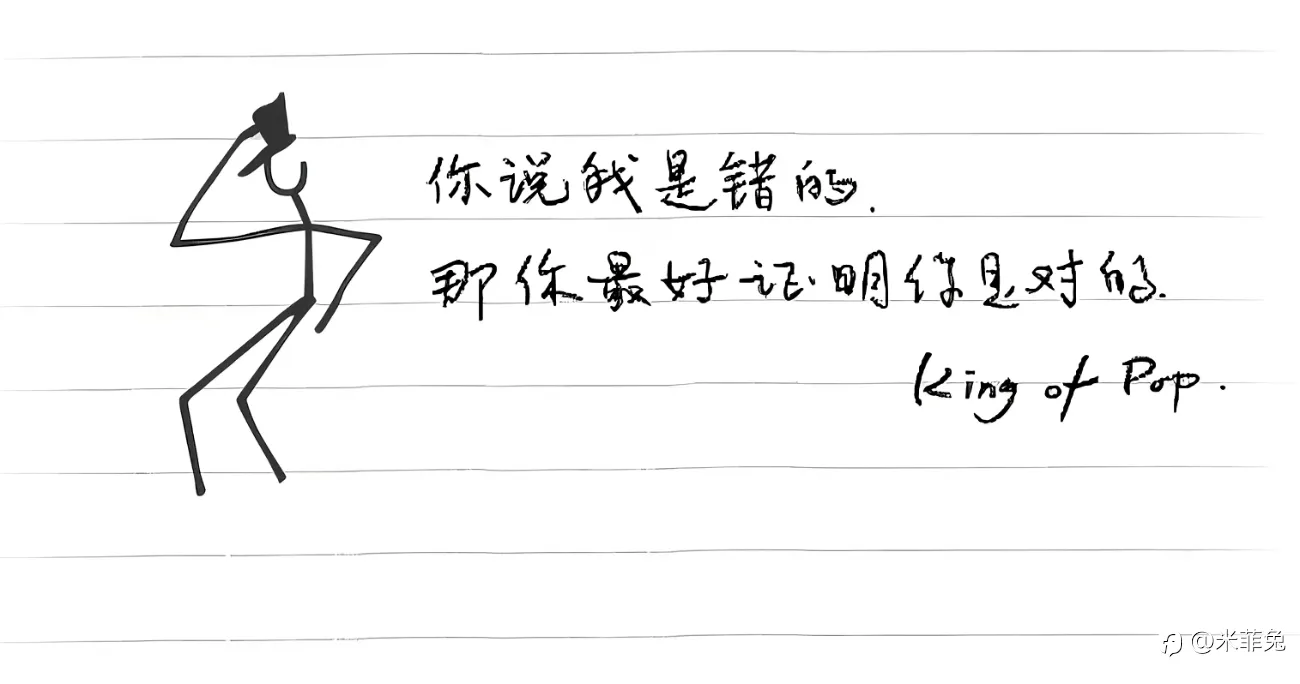 你说我是错的.
那你最好证明你是对的.
King of Pop.
@米菲兔